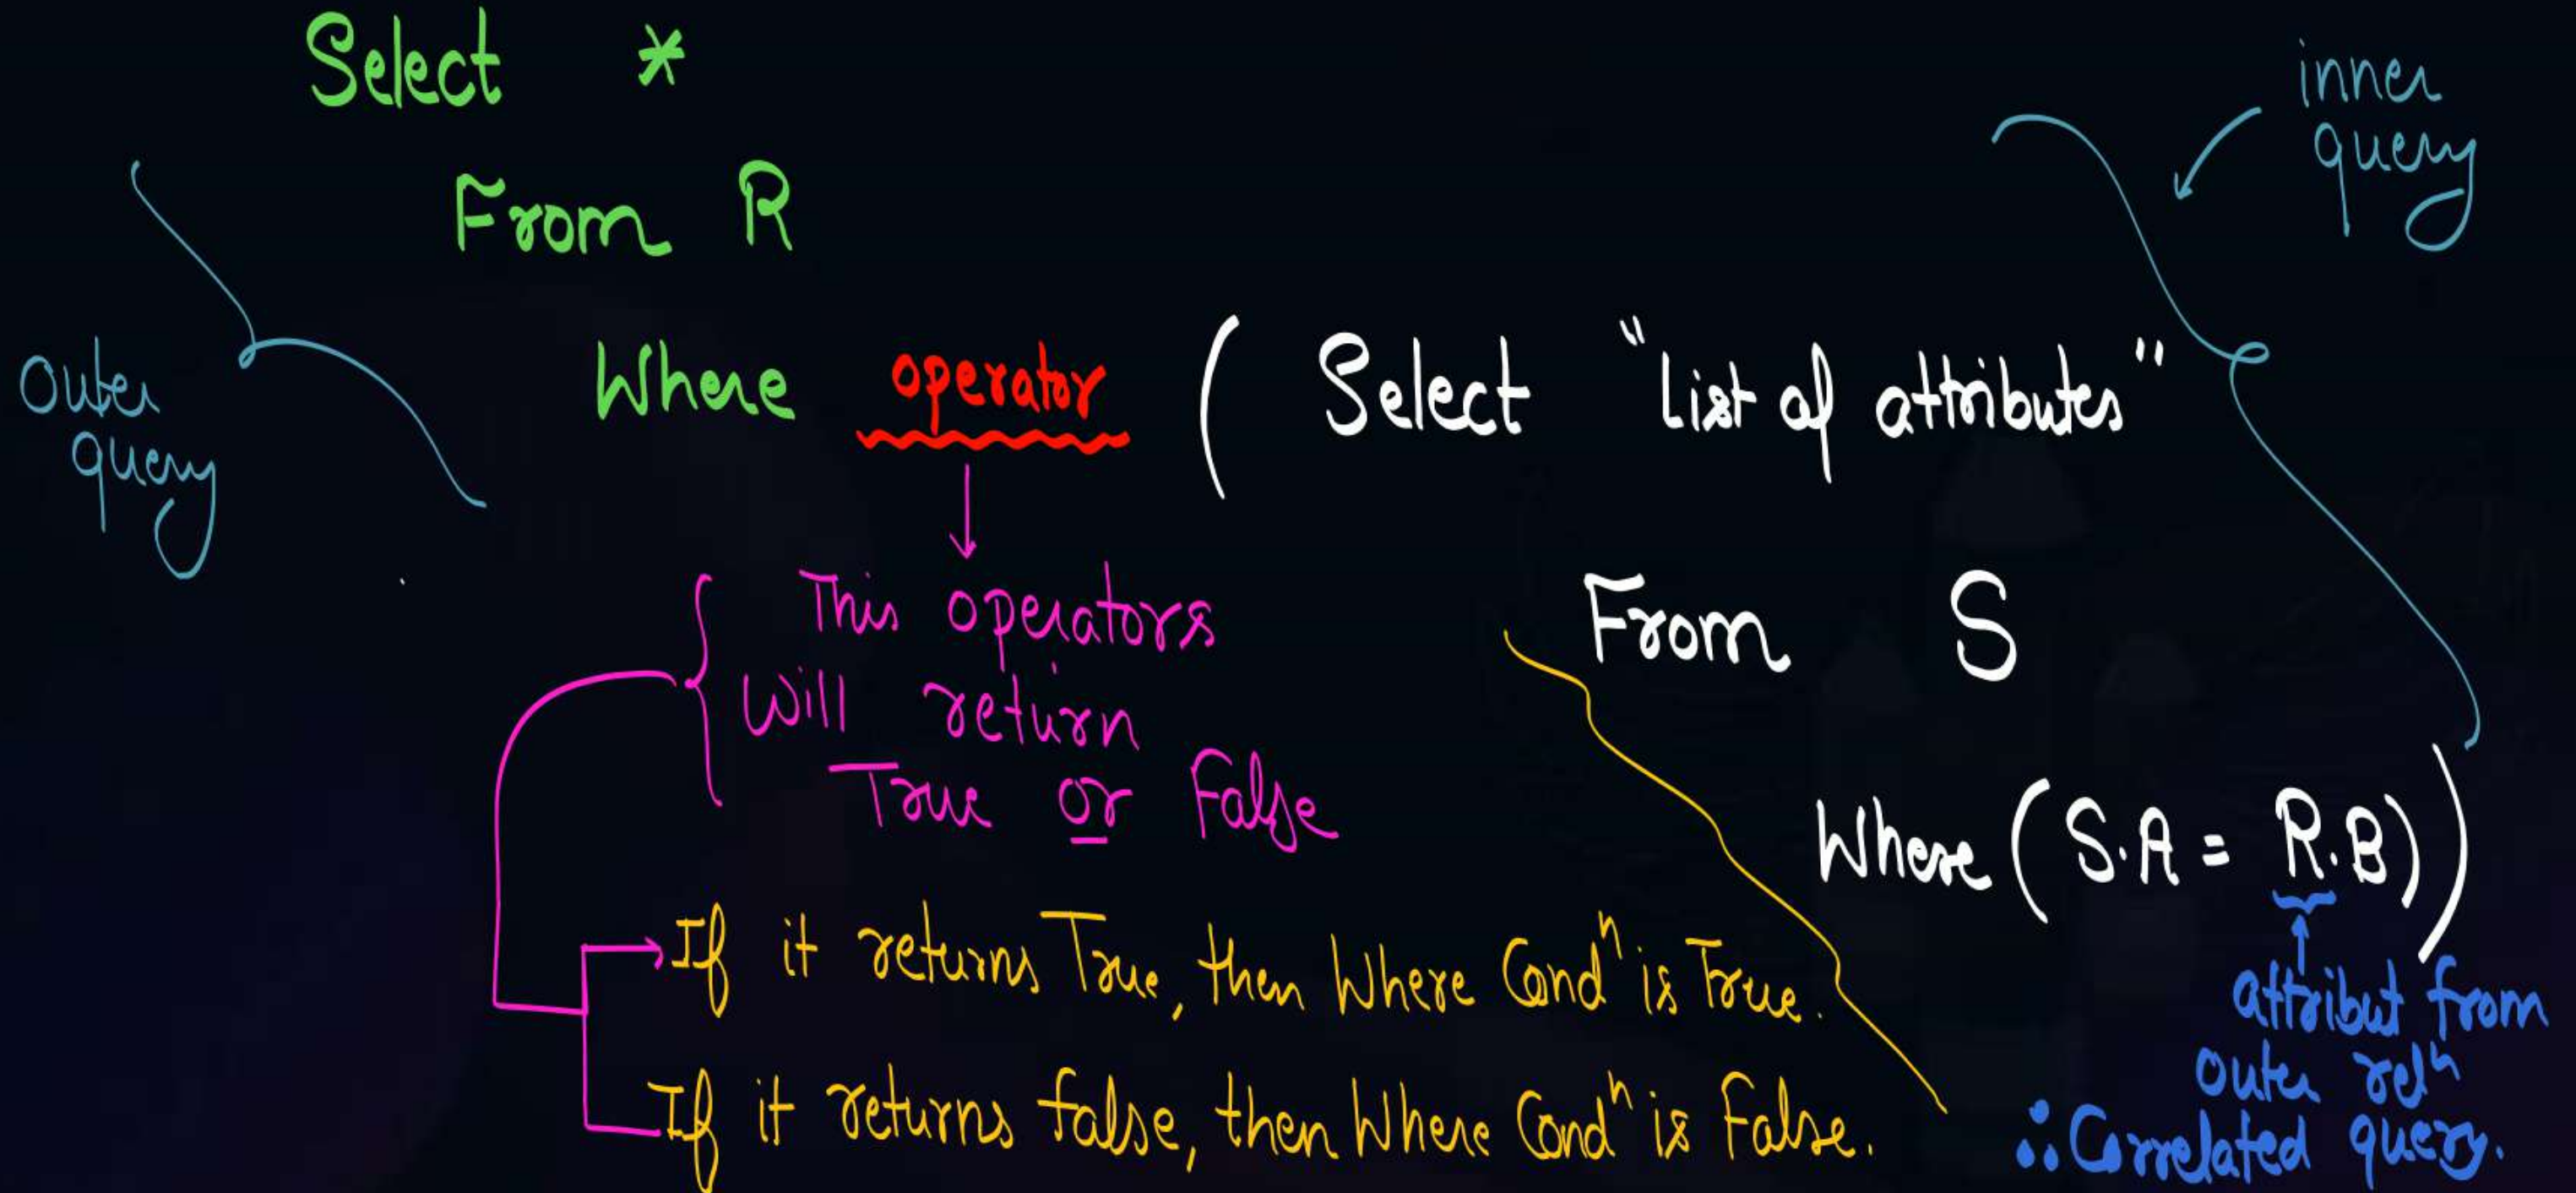 Select *
From R
Where operator ( Select "List of attributes"
From S
Where (S.A = R.B))
inner
query
outer
query
This operators
Will return
True or False
If it returns True, then Where Condⁿ is True.
If it returns false, then Where Condⁿ is False.
attribut from
outer relⁿ
∴ Correlated query.